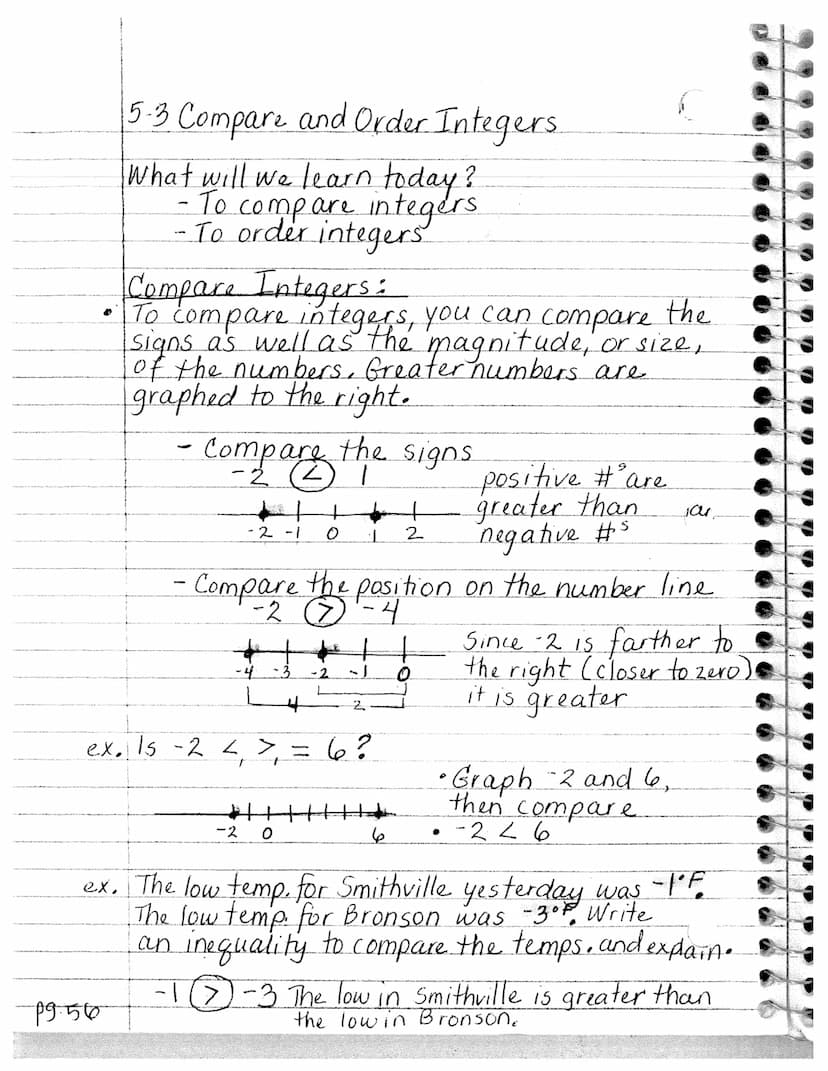 5-3 Compare and Order Integers
What will we learn today?
- To compare integers
- To order integers
Compare Integers:
• To compare integers, you can compare the
signs as well as the magnitude, or size,
of the numbers. Greater numbers are
graphed to the right.
- Compare the signs
-2 < 1
positive #s are
greater than
negative #s
-2 -1 0 1 2
- Compare the position on the number line
-2 > -4
Since -2 is farther to
the right (closer to zero)
it is greater
-4 -3 -2 -1 0
4 2
ex. Is -2 <, >, = 6?
• Graph -2 and 6,
then compare
• -2 < 6
-2 0 6
ex. The low temp. for Smithville yesterday was -1°F.
The low temp. for Bronson was -3°F. Write
an inequality to compare the temps. and explain.
-1 > -3 The low in Smithville is greater than
the low in Bronson.
pg. 56